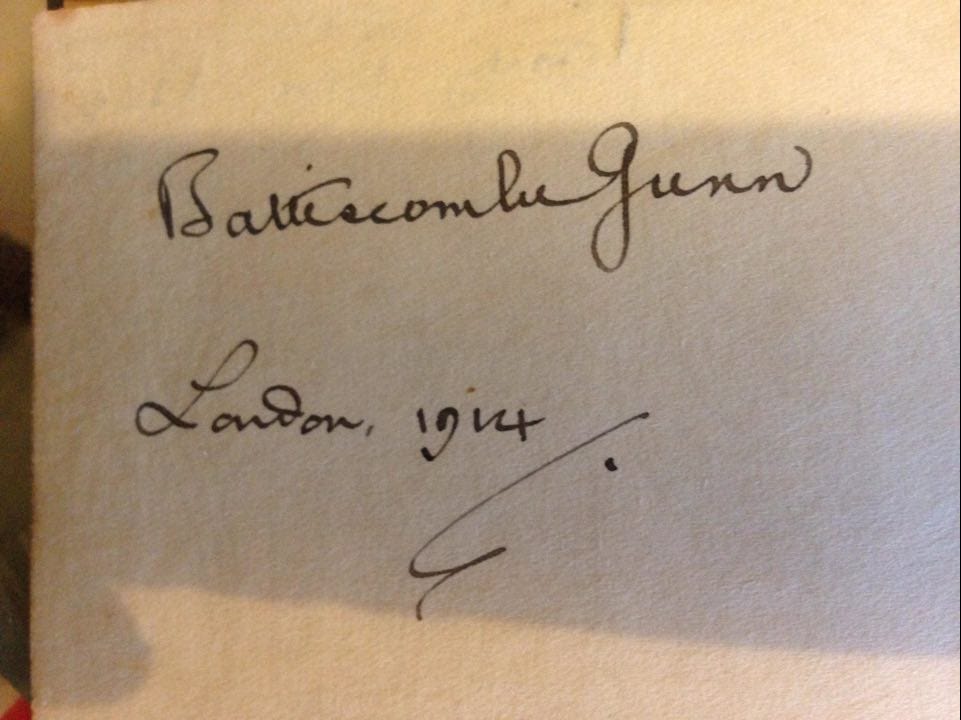 Battiscombe Gunn
London, 1914